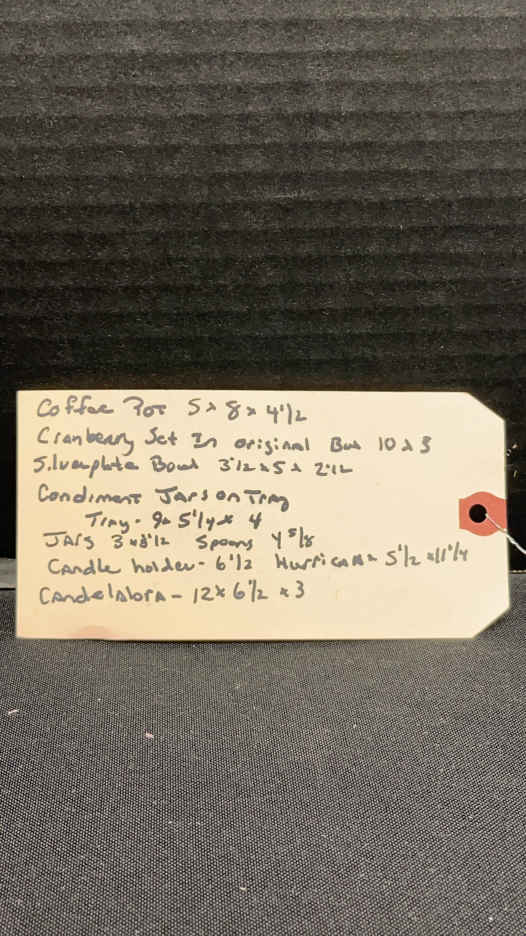 Coffee Pot 5 x 8 x 4 1/2
Cranberry Set In original Box 10 x 3
Silverplate Bowl 3 1/2 x 5 x 2 1/2
Condiment Jars on Tray
Tray - 9 x 5 1/4 x 4
Jars 3 x 3 1/2 Spoons 4 5/8
Candle holder - 6 1/2 Hurricane 5 1/2 x 11 1/4
Candelabra - 12 x 6 1/2 x 3